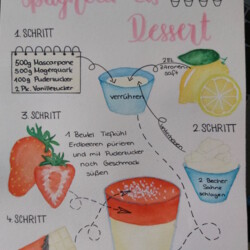 Spaghetti Eis
Dessert
1. SCHRITT
500g Mascarpone
500g Magerquark
100g Puderzucker
2 Pk. Vanillezucker
verrühren
2EL
Zitronen
saft
2. SCHRITT
2 Becher
Sahne
schlagen
3. SCHRITT
1 Beutel Tiefkühl
Erdbeeren pürieren
und mit Puderzucker
nach Geschmack
süßen
4. SCHRITT